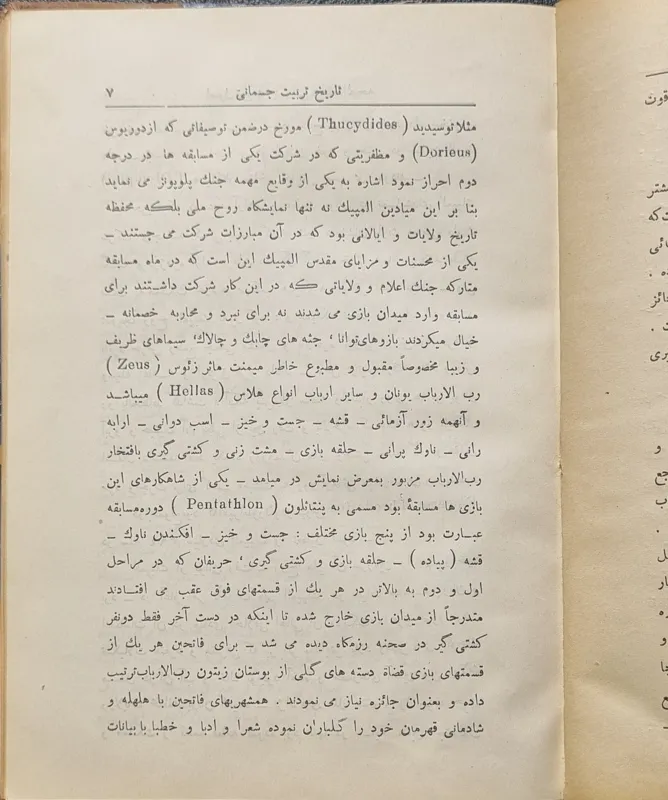 تاریخ تربیت جسمانی ۷
مثلا توسیدید ( Thucydides ) مورخ درضمن توصیفاتی که ازدوریوس
(Dorieus) و مظفریتی که در شرکت یکی از مسابقه ها در درجه
دوم احراز نمود اشاره به یکی از وقایع مهمه جنك پلوپونز می نماید
بنا بر این میادین المپیك نه تنها نمایشگاه روح ملی بلکه محفظه
تاریخ ولایات و ایالاتی بود که در آن مبارزات شرکت می جستند ـ
یکی از محسنات و مزایای مقدس المپیك این است که در ماه مسابقه
متارکه جنك اعلام و ولایاتی که در این کار شرکت داشتند برای
مسابقه وارد میدان بازی می شدند نه برای نبرد و محاربه خصمانه ـ
خیال میکردند بازوهای‌توانا ٬ جثه های چابك و چالاك٬ سیماهای ظریف
و زیبا مخصوصاً مقبول و مطبوع خاطر میمنت ماثر زئوس ( Zeus )
رب الارباب یونان و سایر ارباب انواع هلاس ( Hellas ) میباشد
و آنهمه زور آزمائی ـ قشه ـ جست و خیز ـ اسب دوانی ـ ارابه
رانی ـ ناوك پرانی ـ حلقه بازی ـ مشت زنی و کشتی گیری بافتخار
رب‌الارباب مزبور بمعرض نمایش در میامد ـ یکی از شاهکارهای این
بازی ها مسابقهٔ بود مسمی به پنتاتلون ( Pentathlon ) دوره‌مسابقه
عبارت بود از پنج بازی مختلف : جست و خیز ـ افکندن ناوك ـ
قشه ( پیاده ) ـ حلقه بازی و کشتی گیری ٬ حریفان که در مراحل
اول و دوم به بالاتر در هر یك از قسمتهای فوق عقب می افتادند
متدرجاً از میدان بازی خارج شده تا اینکه در دست آخر فقط دونفر
کشتی گیر در صحنه رزمگاه دیده می شد ـ برای فاتحین هر یك از
قسمتهای بازی قضاة دسته های گلی از بوستان زیتون رب‌الارباب‌ترتیب
داده و بعنوان جائزه نیاز می نمودند . همشهریهای فاتحین با هلهله و
شادمانی قهرمان خود را گلباران نموده شعرا و ادبا و خطبا با بیانات